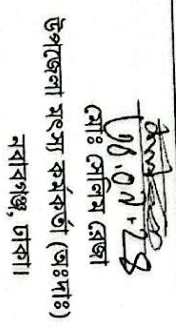 ১৫.০৭.২৪
মোঃ সেলিম রেজা
উপজেলা মৎস্য কর্মকর্তা (অঃদাঃ)
নবাবগঞ্জ, ঢাকা।